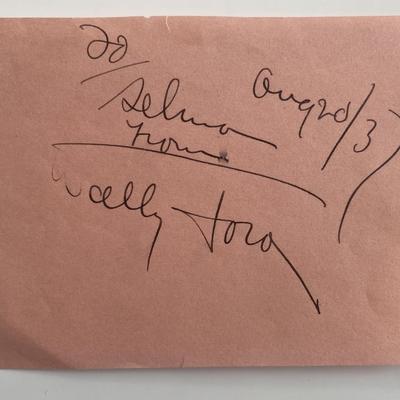 To
Selma Aug 20/37
from
Wally Ford